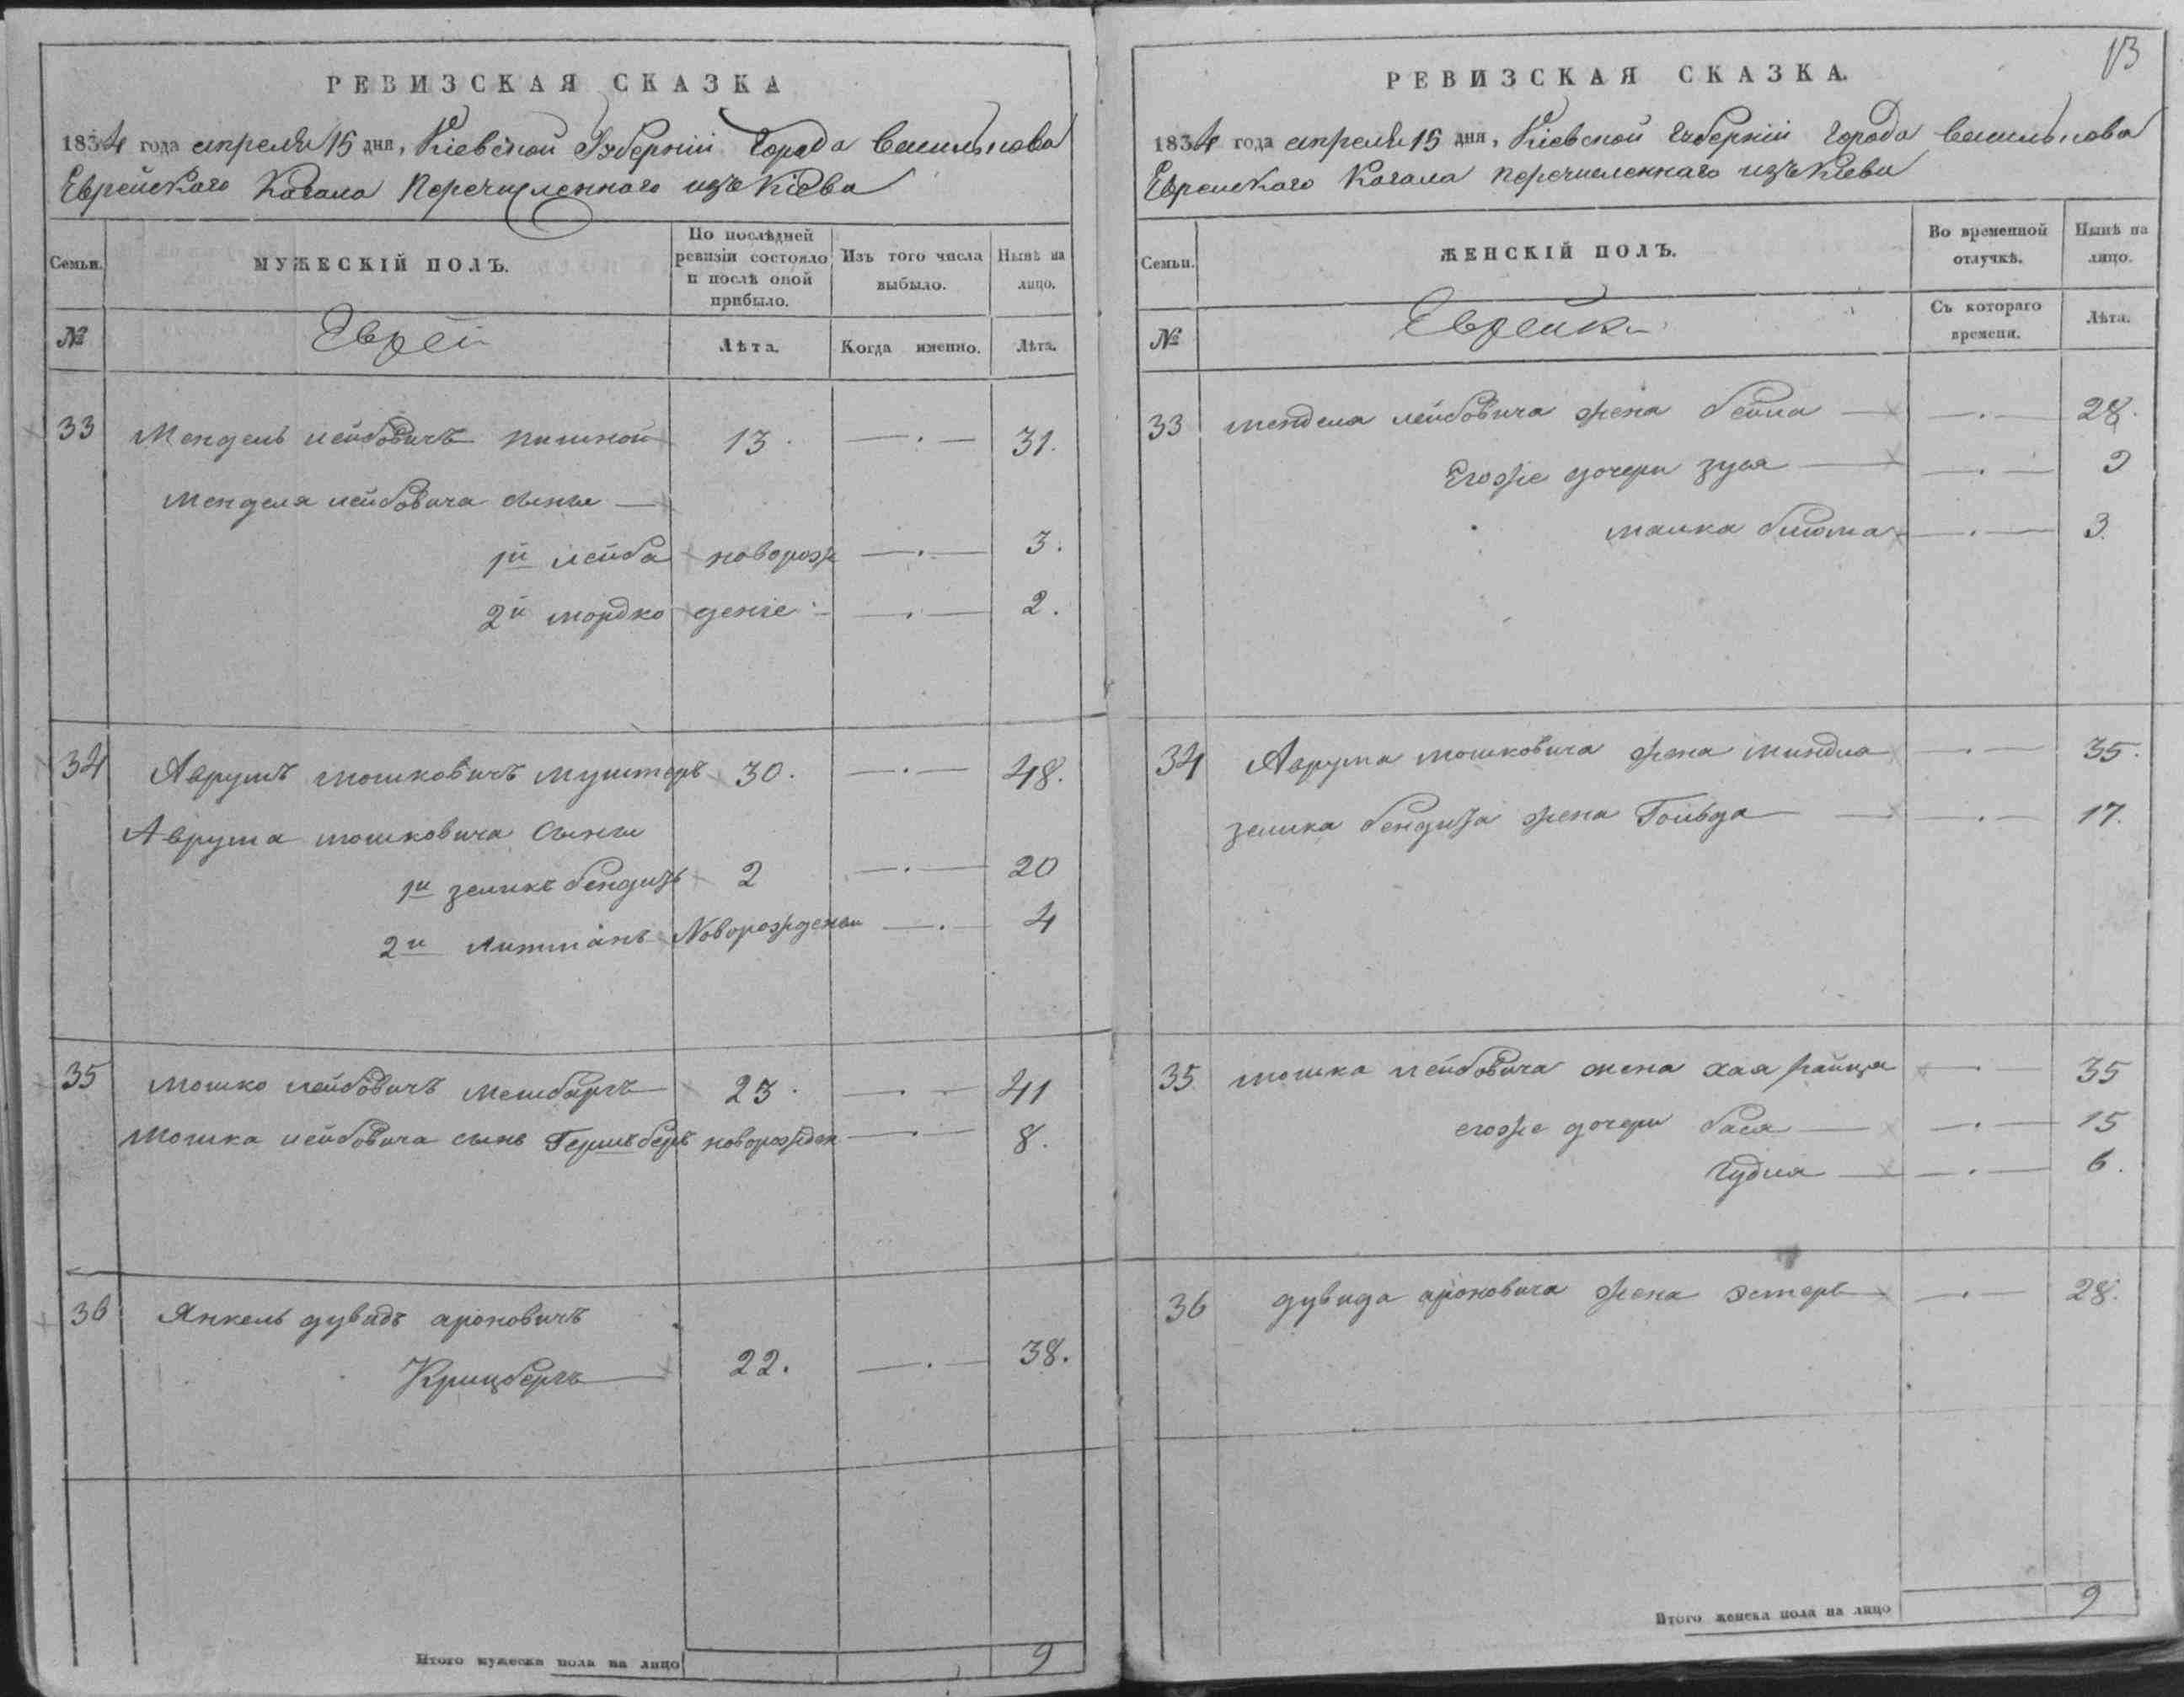 РЕВИЗСКАЯ СКАЗКА
1834 года апреля 15 дня, Кіевской Губерніи Города Василькова
Еврейскаго Кагала Перечисленнаго изъ Кіева
Семьи.
МУЖЕСКІЙ ПОЛЪ.
По послѣдней ревизіи состояло и послѣ оной прибыло.
Изъ того числа выбыло.
Нынѣ на лицо.
№
Евреи
Лѣта.
Когда именно.
Лѣта.
33 Мендель лейбовичъ 13. 31.
Менделя лейбовича сыны
1й лейба новорож 3.
2й мордко деніе 2.
34 Аврумъ мошковичъ муштеръ 30. 48.
Аврума мошковича сыны
1й зеликъ бендитъ 2 20
2й литманъ Новорожденъ 4
35 мошко лейбовичъ 23. 41
мошка лейбовича сынъ Гершъ беръ новорожден 8.
36 Янкель дувидъ ароновичъ
Крицбергъ 22. 38.
Итого мужеска пола на лицо 9
13
РЕВИЗСКАЯ СКАЗКА.
1834 года апреля 15 дня, Кіевской Губерніи Города Василькова
Еврейскаго Кагала перечисленнаго изъ Кіева
Семьи.
ЖЕНСКІЙ ПОЛЪ.
Во временной отлучкѣ.
Нынѣ на лицо.
№
Еврейки
Съ котораго времени.
Лѣта.
33 менделя лейбовича жена бейла 28.
Егоже дочери зуся 9
малка блюма 3.
34 Аврума мошковича жена миндля 35.
зелика бендита жена Гольда 17.
35 мошка лейбовича жена хая райца 35
егоже дочери бася 15
Гудля 6.
36 дувида ароновича жена эстеръ 28.
Итого женска пола на лицо 9